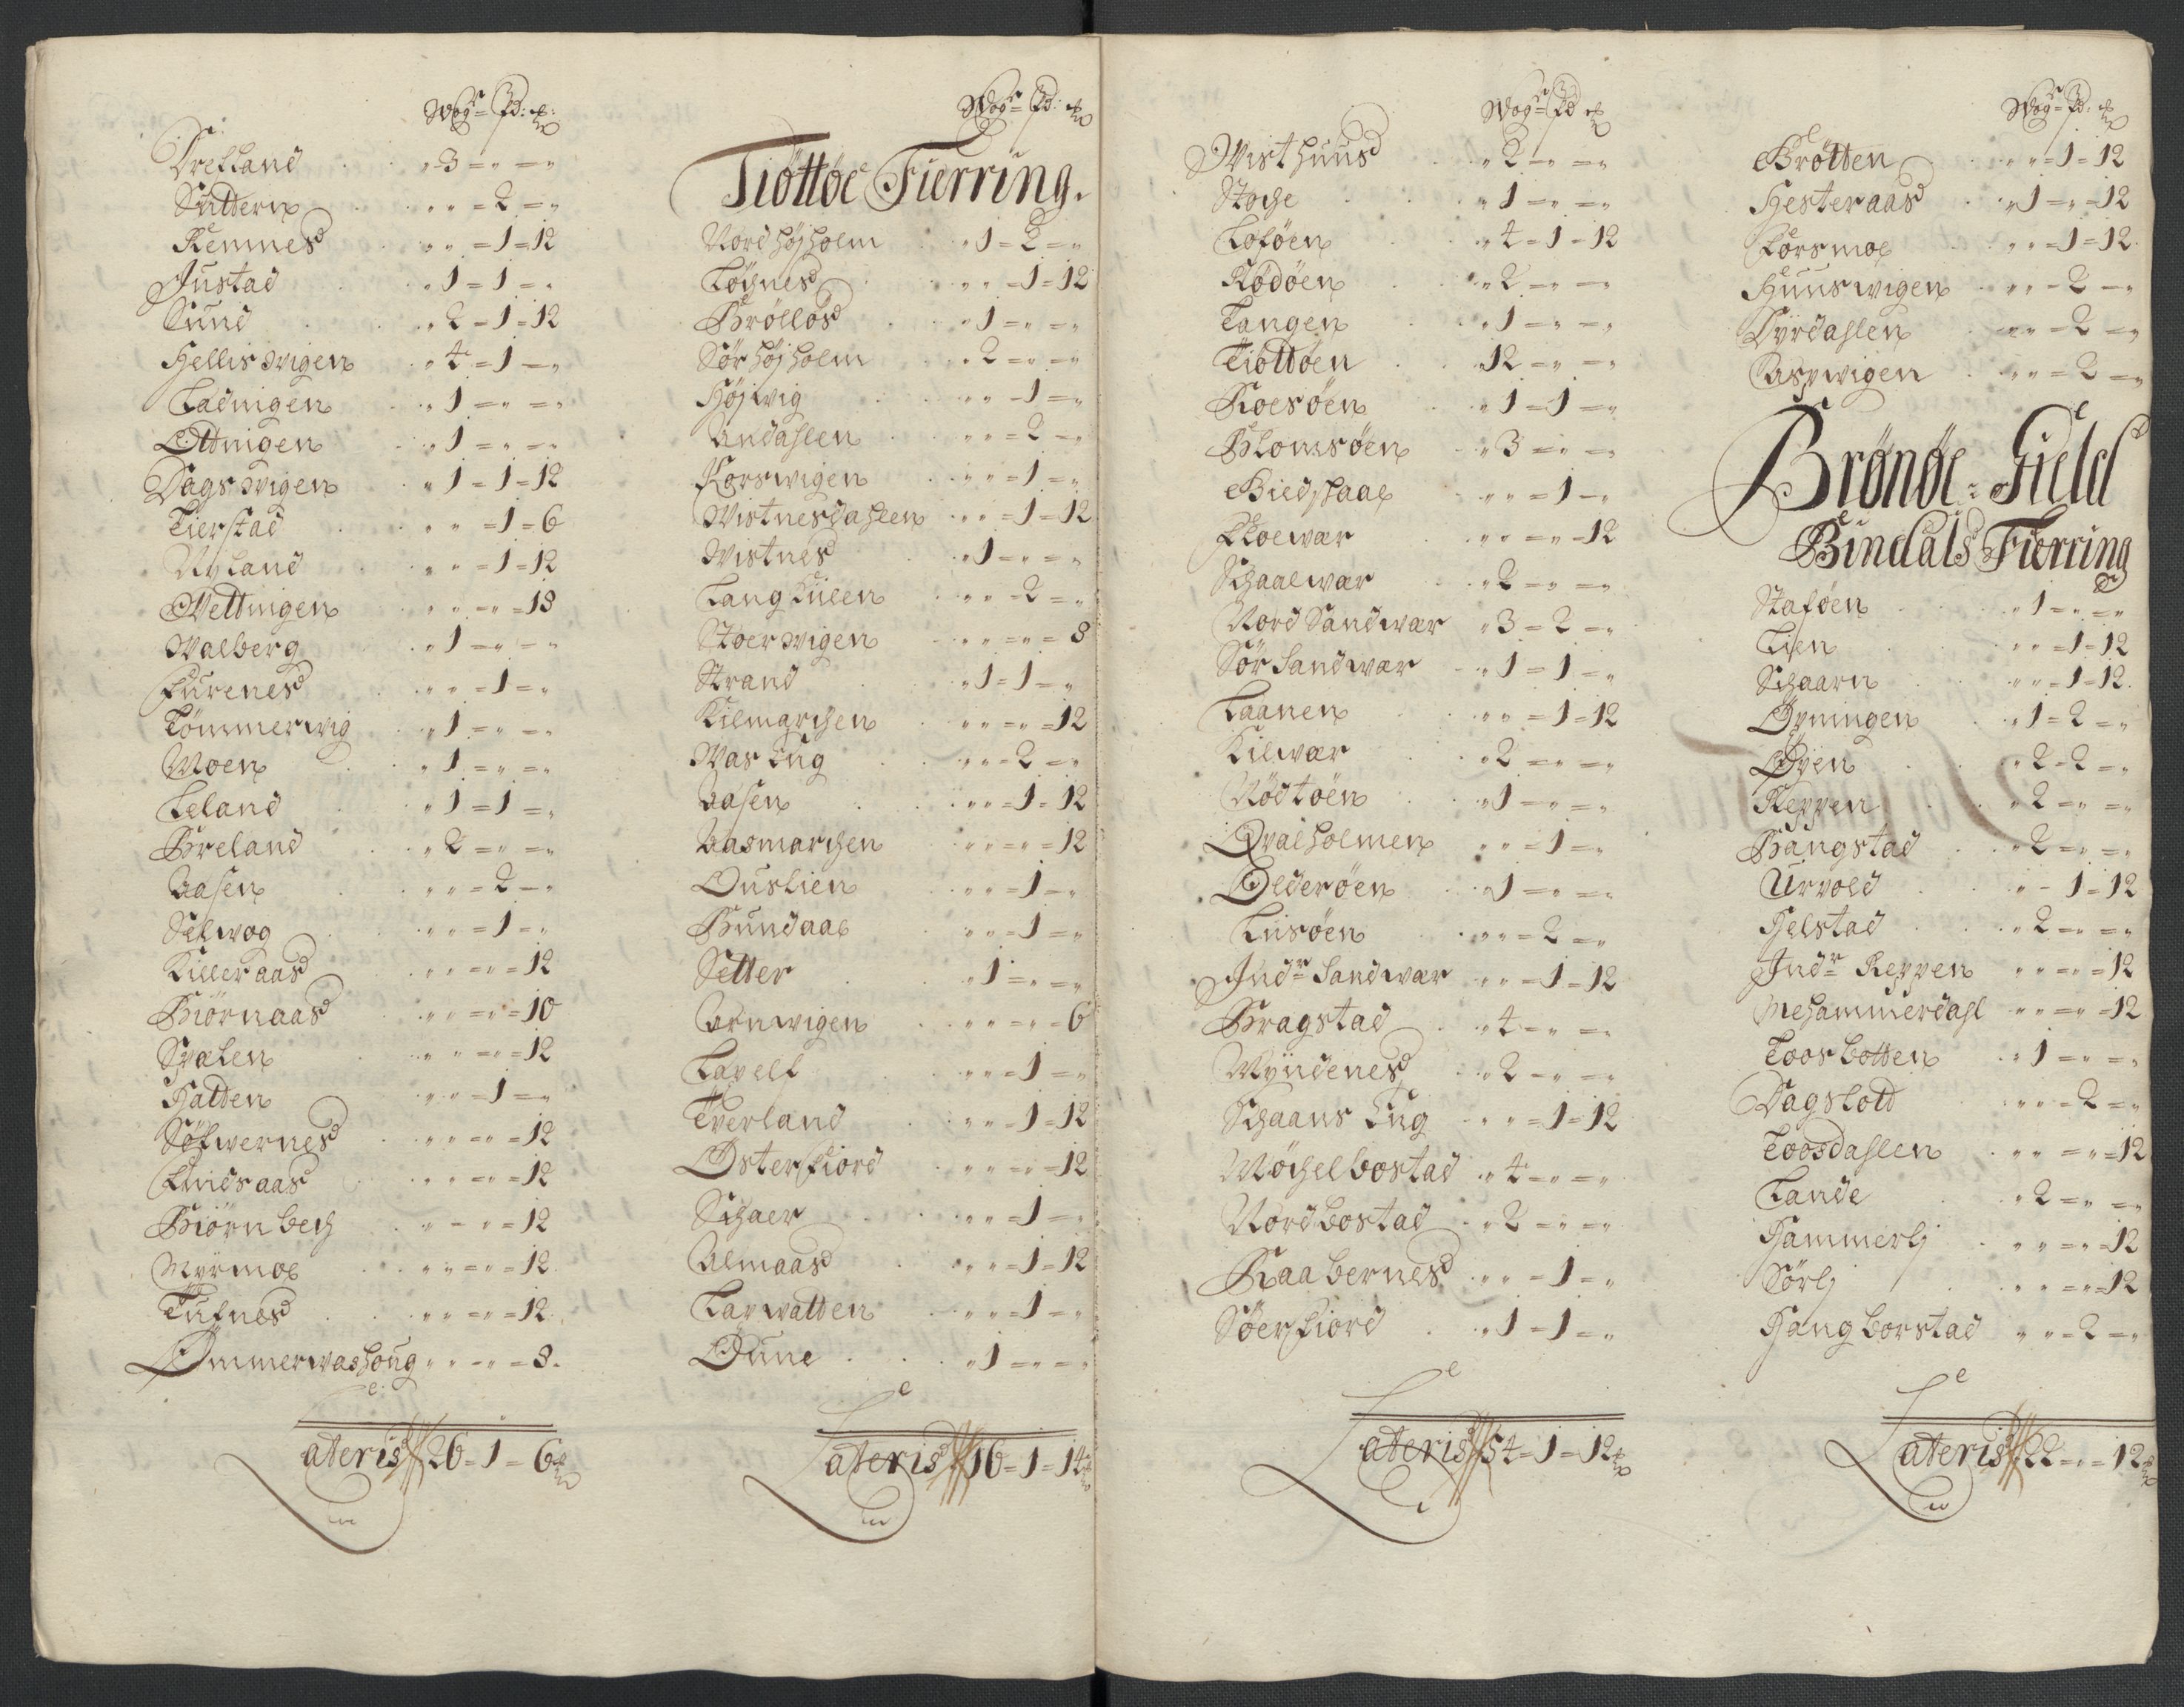 Wog℔r Pd: ℔:
Drefland „ 3 = „ = „
Sættern „ „ = 2 = „
Remnes „ „ = 1 = 12
Justad „ 1 = 1 = „
Sund „ 2 = 1 = 12
Hellisvigen „ 4 = 1 = „
Ladnigen „ 1 = „ = „
Ottnigen „ 1 = „ = „
Dagsvigen „ 1 = 1 = 12
Tierstad „ „ = 1 = 6
Nyland „ „ = 1 = 12
Wettnigen „ „ = „ = 18
Walberg „ 1 = „ = „
Furenes „ „ = 1 = „
Tömmervig „ 1 = „ = „
Moen „ 1 = „ = „
Leland „ 1 = 1 = „
Breland „ 2 = „ = „
Aasen „ „ = 2 = „
Selwog „ „ = 1 = „
Killeraas „ „ = „ = 12
Biørnaas „ „ = „ = 10
Svalen „ „ = „ = 12
Hatten „ „ = 1 = „
Søfwernes „ „ = „ = 12
Lindsaas „ „ = „ = 12
Biørnbech „ „ = „ = 12
Myrmoe „ „ = „ = 12
Tufnes „ „ = „ = 12
Ømmerwashoug „ „ = „ = 8
Lateris 26 = 1 = 6
Wogr Pd: ℔
Tiøttøe Fierring.
Nord højholm „ 1 = 2 = „
Løchnes „ „ = 1 = 12
Brølløs „ 1 = „ = „
Sør højholm „ 2 = „ = „
Højwig „ „ = 1 = „
Andahlen „ „ = 2 = „
Forswigen „ „ = 1 = „
Wistnesdahlen „ „ = 1 = 12
Wistnes „ 1 = „ = „
Lang Lüen „ „ = 2 = „
Stoerwigen „ „ = „ = 8
Strand „ 1 = 1 = „
Kilmarchen „ „ = „ = 12
Was Lug „ „ = 2 = „
Aasen „ „ = 1 = 12
Aasmarchen „ „ = „ = 12
Ouslien „ „ = 1 = „
Hundaal „ „ = 1 = „
Setter „ 1 = „ = „
Arnwigen „ „ = „ = 6
Lavelf „ „ = 1 = „
Tverland „ „ = 1 = 12
Østerfiord „ „ = „ = 12
Schaer „ „ = 1 = „
Almaas „ „ = 1 = 12
Lapwatten „ „ = 1 = „
Øune „ 1 = „ = „
Lateris 16 = 1 = 14
Wogr Pd ℔
Wisthuus „ 2 = „ = „
Stoche „ 1 = „ = „
Loføen „ 4 = 1 = 12
Rødøen „ 2 = „ = „
Tangen „ 1 = „ = „
Tiøttøen 12 = „ = „
Roesøen „ 1 = 1 = „
Blomsøen „ 3 = „ = „
Giedskaal „ „ = 1 = „
Floewær „ „ = „ = 12
Schaalwær „ 2 = „ = „
Nord Sandwær „ 3 = 2 = „
Sør Sandwær „ 1 = 1 = „
Laanen „ „ = 1 = 12
Kilwær „ 2 = „ = „
Nødtøen „ 1 = „ = „
Qvalholmen „ „ = 1 = „
Olderøen „ 1 = „ = „
Lusøen „ „ = 2 = „
Indr Sandwær „ „ = 1 = 12
Bragstad „ 4 = „ = „
Myndenes „ 2 = „ = „
Schaans Lug „ „ = 1 = 12
Møchelbostad „ 4 = „ = „
Nordbostad „ 2 = „ = „
Raabernes „ „ = 1 = „
Søerfiord „ 1 = 1 = „
Lateris 54 = 1 = 12
Wogr Pd: ℔
Brøtten „ „ = 1 = 12
Hesteraas „ 1 = „ = 12
Forsmoe „ „ = 1 = 12
Huuswigen „ „ = 2 = „
Dyrdahlen „ „ = 2 = „
Aspwigen „ „ = 2 = „
Brønøe = Gield
Bindals Fierring
Staføen „ 1 = „ = „
Lien „ „ = 1 = 12
Schaarn „ „ = 1 = 12
Øyningen „ 1 = 2 = „
Øyen „ 2 = 2 = „
Reppen „ 2 = „ = „
Bangstad „ 2 = „ = „
Urvold „ „ = 1 = 12
Helstad „ 2 = „ = „
Indr Reppen „ „ = „ = 12
Mehammerdahl „ „ = „ = 12
Toosbotten „ 1 = „ = „
Dagslott „ „ = 2 = „
Toosdahlen „ „ = „ = 12
Lande „ 2 = „ = „
Hammerlj „ „ = „ = 12
Sørlj „ „ = „ = 12
Hangborstad „ „ = 2 = „
Lateris 22 = „ = 12